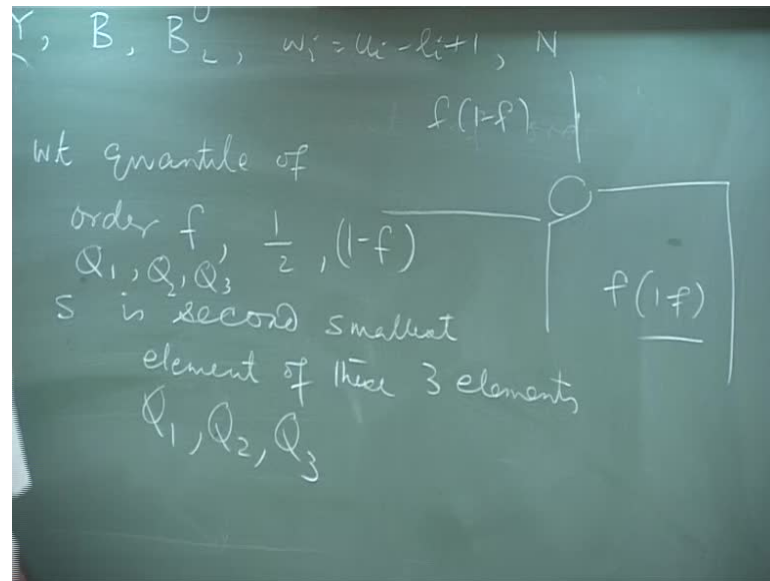 Y, B, B_L^U, w_i = u_i - l_i + 1, N
f(1-f)
wt quantile of
order f, 1/2, (1-f)
Q_1, Q_2, Q_3
f(1-f)
S is second smallest
element of these 3 elements
Q_1, Q_2, Q_3